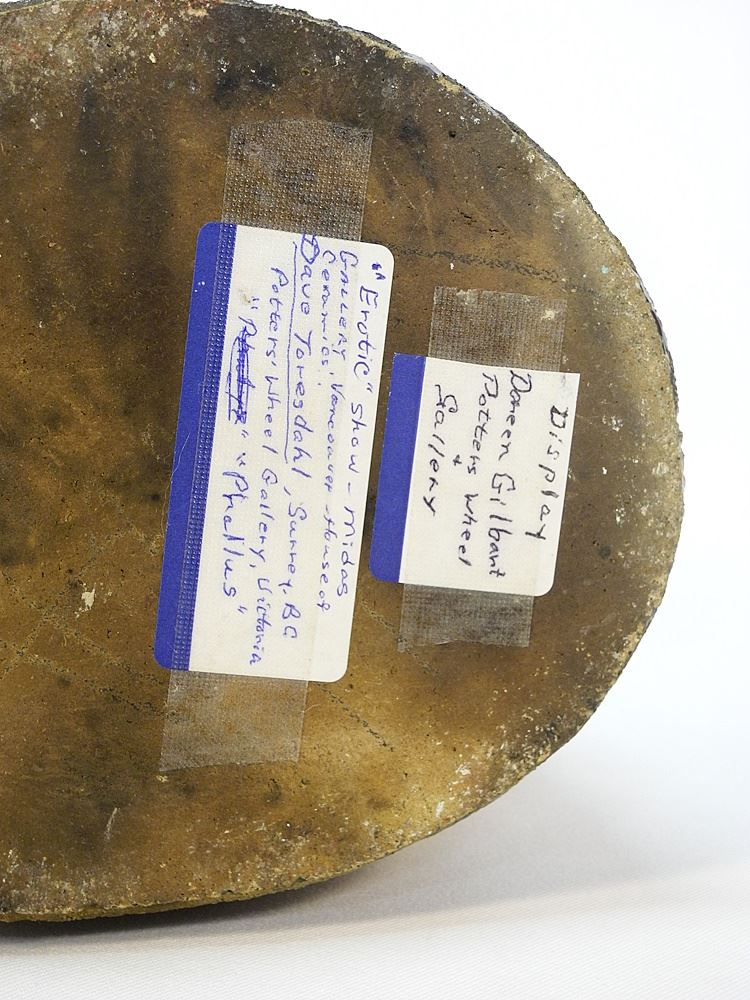 "Erotic" show - Midas
Gallery, Vancouver - House of
Ceramics.
Dave Toresdahl, Surrey, BC
Potters' Wheel Gallery, Victoria
" " "Phallus"
Display
Doreen Gilbant
Potters Wheel
+
Gallery